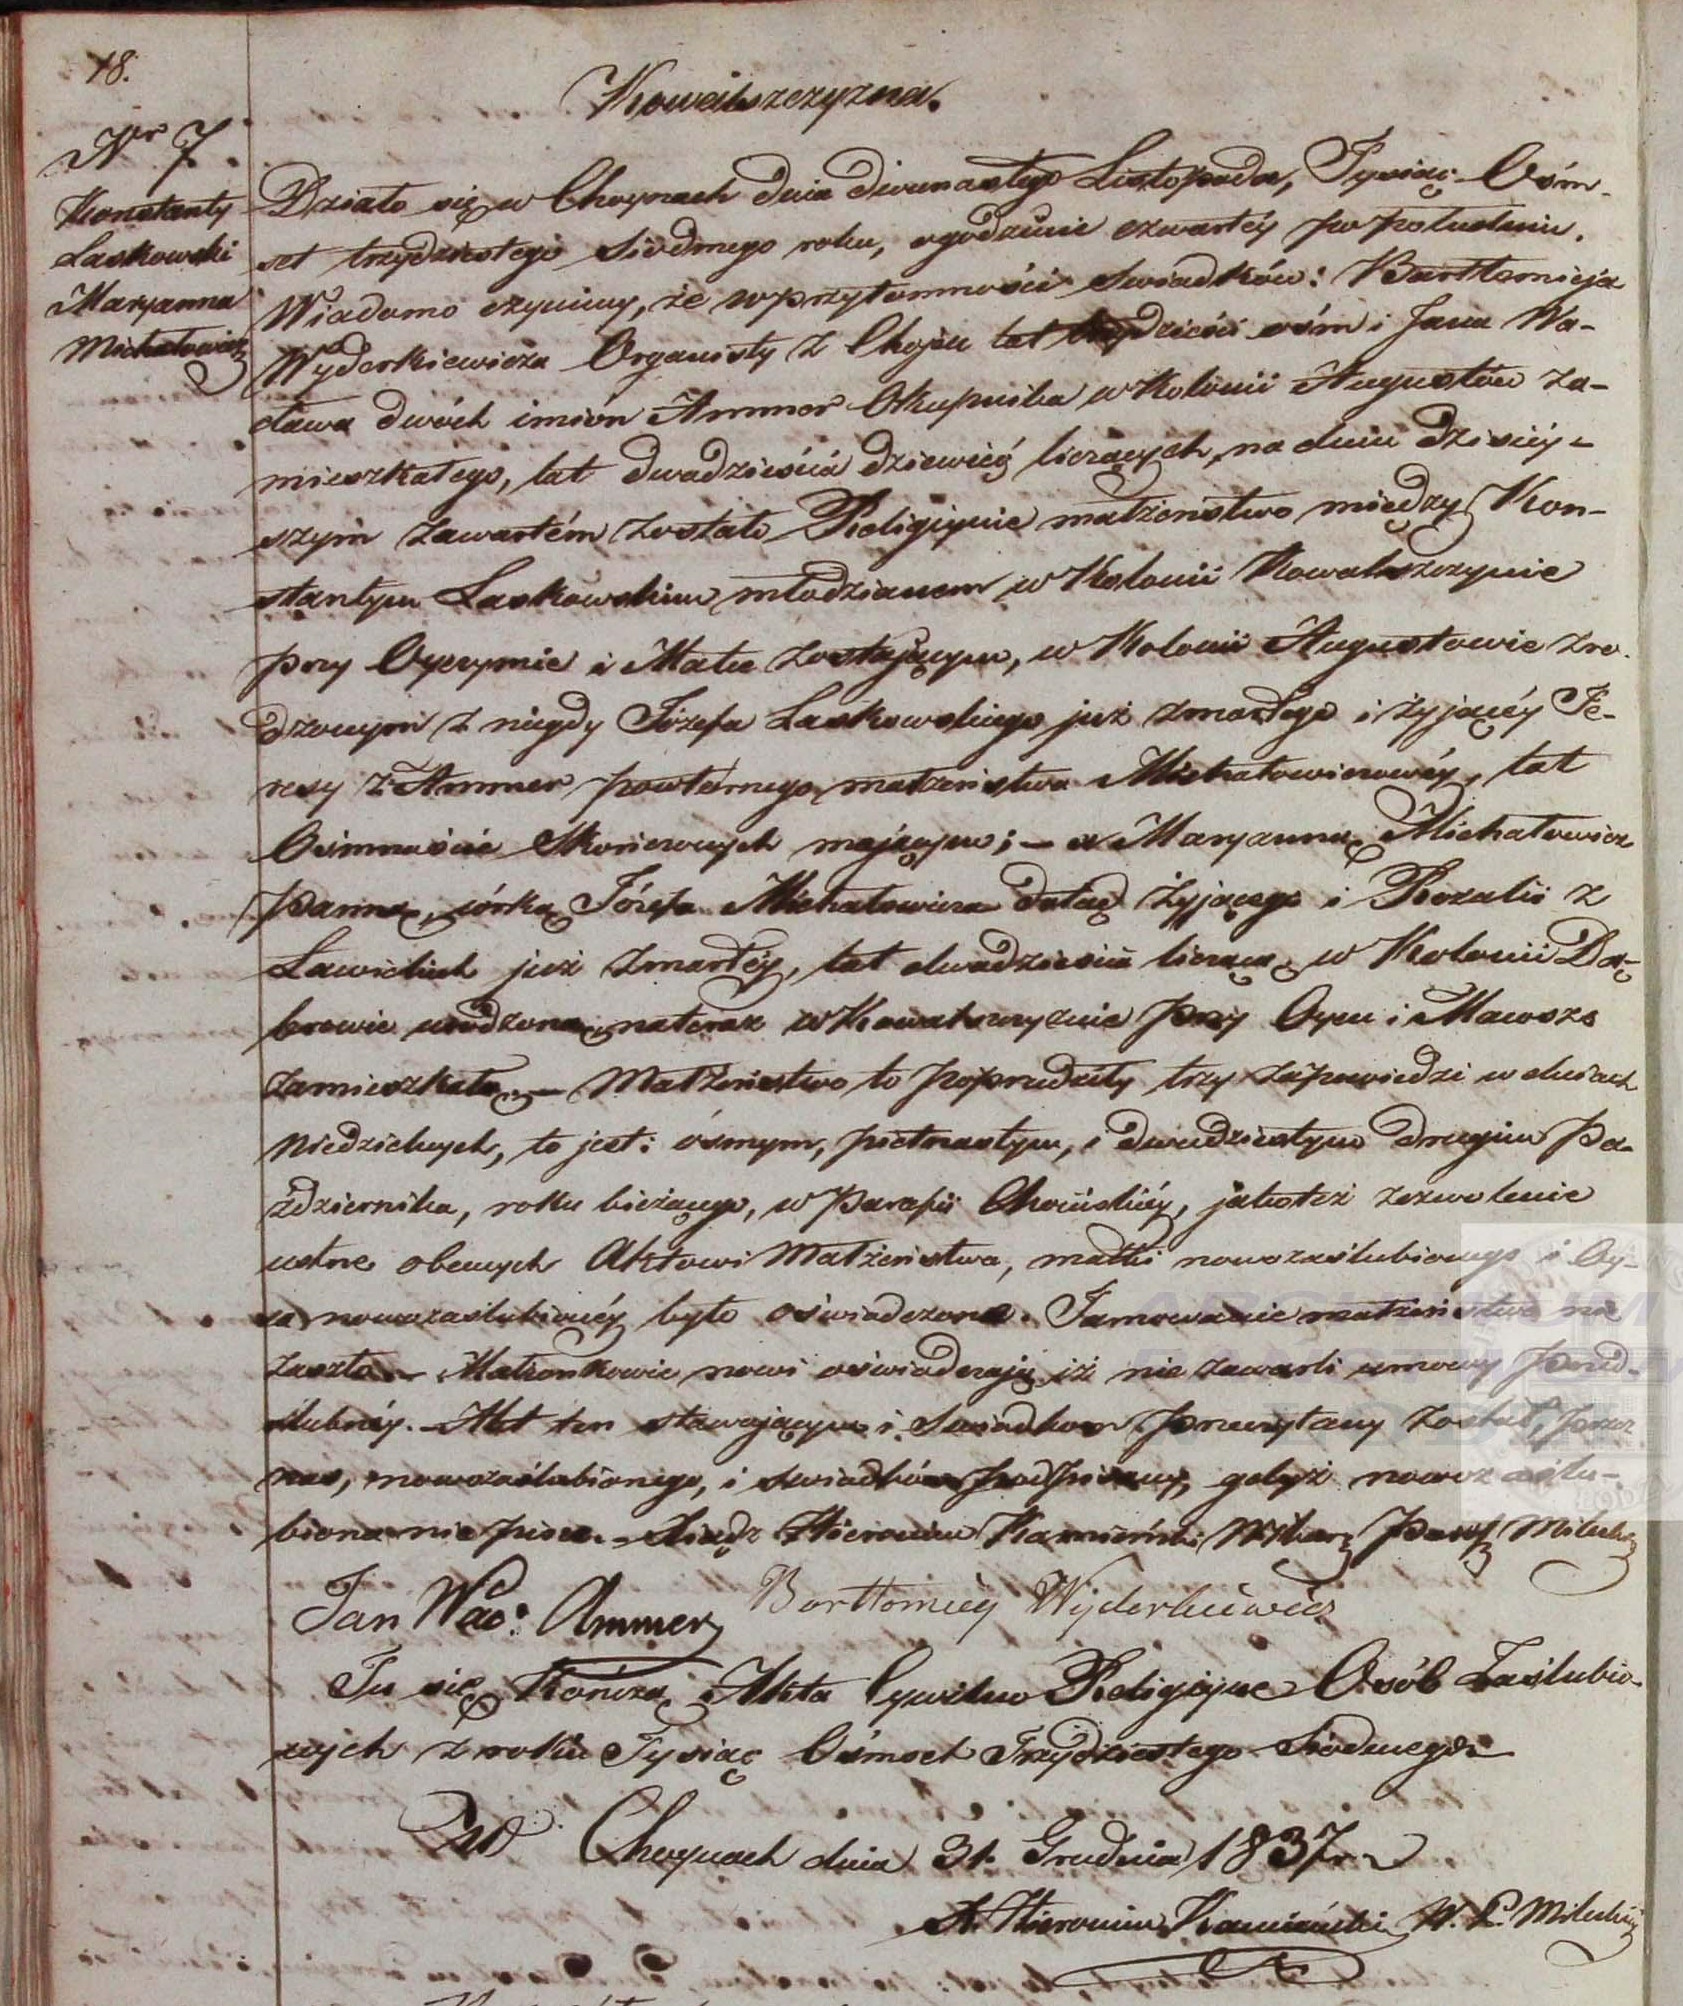 18.
Kowalszczyzna.
Nr 7.
Konstanty
Laskowski
Maryanna
Michałowicz
Działo się w Choynach dnia dwunastego Listopada, Tysiąc Ośm-
set trzydziestego siódmego roku, o godzinie czwartéy po południu.
Wiadomo czyniemy, że w przytomności świadków: Bartłomieja
Wyderkiewicza Organisty z Chojen lat trzydzieści ośm i Jana Wa-
cława dwóch imion Ammer Okupnika w Kolonii Augustów za-
mieszkałego, lat dwadzieścia dziewięć liczących, na dniu dzisiéy-
szym zawartém zostało Religijnie małżeństwo między Kon-
stantym Laskowskim młodzianem w Kolonii Kowalszczyznie
przy Oyczymie i Matce zostającym, w Kolonii Augustowie zro-
dzonym z niegdy Józefa Laskowskiego już zmarłego i żyjącéy Te-
resy z Ammer powtórnego małżeństwa Michałowiczowéy, lat
Ośmnaście skończonych mającym; – a Maryanną Michałowicz
Panną, córką Józefa Michałowicza dotąd żyjącego i Rozalii z
Lawickich już zmarłéy, lat dwadzieścia liczącą, w Kolonii Dą-
browie urodzoną, na teraz w Kowalszczyznie przy Oycu i Macosze
zamieszkałą. – Małżeństwo to poprzedziły trzy zapowiedzi w dniach
Niedzielnych, to jest: ósmym, piętnastym, i dwudziestym drugim Pa-
ździernika, roku bieżącego, w Parafii Choińskiéy, jakoteż zezwolenie
ustne obecnych Aktowi Małżeństwa, matki nowozaślubionego i Oy-
ca nowozaślubionéy było oświadczone. Tamowanie małżeństwa nie
zaszło. – Małżonkowie nowi oświadczają iż nie zawarli umowy przed-
ślubnéy. – Akt ten stawającym i świadkom przeczytany został, przez
nas, nowozaślubionego, i świadków podpisany, gdyż nowozaślu-
biona nie pisze. – Xiądz Hieronim Kamieński Wikary Paraf: Mileski
Jan Wac: Ammer Bartłomiéy Wyderkiewicz
Tu się Kończą Akta Cywilno Religijne Osób Zaślubio-
nych z roku Tysiąc Ośmset Trzydziestego Siódmego.
W Choynach dnia 31. Grudnia 1837 r.
X. Hieronim Kamieński W. P. Mileski